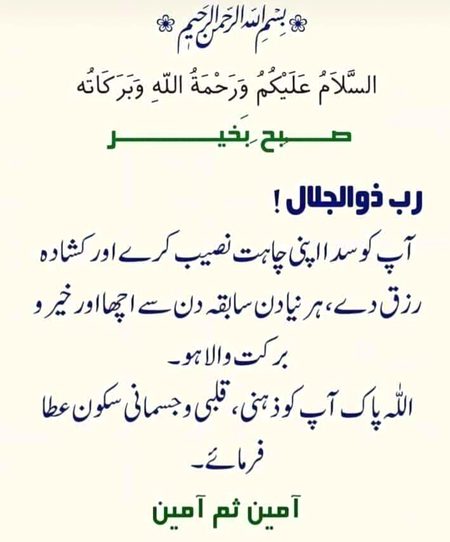 بِسْمِ اللهِ الرَّحْمٰنِ الرَّحِيْمِ
السَّلاَمُ عَلَيْكُمْ وَرَحْمَةُ اللهِ وَبَرَكَاتُه
صبح بَخیر
رب ذوالجلال !
آپ کو سدا اپنی چاہت نصیب کرے اور کشادہ
رزق دے، ہر نیا دن سابقہ دن سے اچھا اور خیر و
برکت والا ہو۔
اللہ پاک آپ کو ذہنی، قلبی و جسمانی سکون عطا
فرمائے۔
آمین ثم آمین